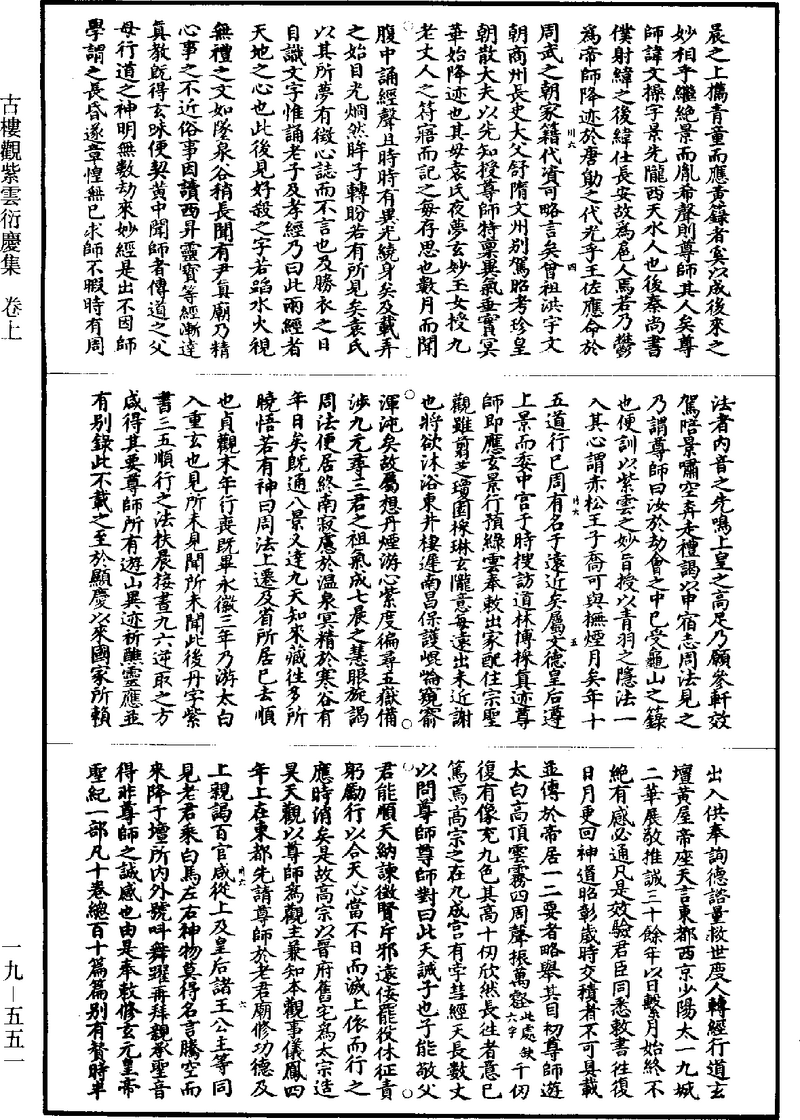 古樓觀紫雲衍慶集　卷上
一九—五五一
晨之上攜青童而應黃籙者奚以成後來之
妙相乎繼絕景而胤希聲則尊師其人矣尊
師諱文操字景先隴西天水人也後秦尚書
僕射緯之後緯仕長安故為扈人焉若乃鬱
為帝師降迹於唐勛之代光乎王佐應命於
周武之朝家籍代資可略言矣曾祖洪宇文
朝商州長史大父舒隋文州別駕昭考珍皇
朝散大夫以先知授尊師特稟異氣垂實冥
華始降迹也其母袁氏夜夢玄妙玉女授九
老丈人之符寤而記之每存思也數月而聞
腹中誦經聲且時時有異光繞身矣及載弄
之始目光烱然眸子轉盼若有所見矣袁氏
以其所夢有徵心誌而不言也及勝衣之日
自識文字惟誦老子及孝經乃曰此兩經者
天地之心也此後見好殺之字若蹈水火視
無禮之文如墜泉谷稍長聞有尹真廟乃精
心事之不近俗事因讀西昇靈寶等經漸達
真教既得玄味便契黃中聞師者傳道之父
母行道之神明無數劫來妙經是出不因師
學謂之長昏遂章惶無已求師不暇時有周
法者內音之先鳴上皇之高足乃願參軒效
駕陪景嘯空奔走禮謁以申宿志周法見之
乃謂尊師曰汝於劫會之中已受龜山之籙
也便訓以紫雲之妙旨授以青羽之隱法一
入其心謂赤松王子喬可與撫煙月矣年十
五道行已周有名于遠近矣屬文德皇后遵
上景而委中宮于時搜訪道林博採真迹尊
師即應玄景行預綠雲奉敕出家配住宗聖
觀雖翦芝瓊圃採琳玄隴意每遠出未近謝
也將欲沐浴東井棲遲南昌保護崐崘窺齋
渾沌矣故屬想丹煙游心紫度徧尋五嶽備
涉九元尊三君之祖氣成七晨之慧眼旋謁
周法便居終南寂慮於溫泉冥精於寒谷有
年日矣既通八景又達九天知來藏往多所
曉悟若有神曰周法上遷及省所居已去順
也貞觀末年行喪既畢永徽三年乃游太白
入重玄也見所未見聞所未聞此後丹字紫
書三五順行之法扶晨接晝九六逆取之方
咸得其要尊師所有遊山異迹祈醮靈應並
有別錄此不載之至於顯慶以來國家所賴
出入供奉詢德諮量救世度人轉經行道玄
壇黃屋帝座天言東都西京少陽太一九城
二華展敬推誠三十餘年以日繫月始終不
絕有感必通凡是效驗君臣同悉敕書往復
日月更回神道昭彰歲時交積者不可具載
並傳於帝居一二要者略舉其目初尊師遊
太白高頂雲霧四周聲振萬壑此處缺六字千仞
復有像充九色其高十仞欣然長往者意已
篤焉高宗之在九成宮有孛彗經天長數丈
以問尊師尊師對曰此天誡子也子能敬父
君能順天納諫徵賢斥邪遠佞罷役休征責
躬勵行以合天心當不日而滅上依而行之
應時消矣是故高宗以晉府舊宅為太宗造
昊天觀以尊師為觀主兼知本觀事儀鳳四
年上在東都先請尊師於老君廟修功德及
上親謁百官咸從上及皇后諸王公主等同
見老君乘白馬左右神物莫得名言騰空而
來降于壇所內外號呌舞躍再拜親承聖音
得非尊師之誠感也由是奉敕修玄元皇帝
聖紀一部凡十卷總百十篇篇別有贊時半